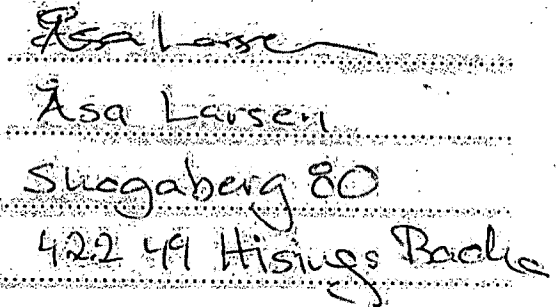 Åsa Larsen
Åsa Larsen
Skogaberg 80
422 49 Hisings Backa